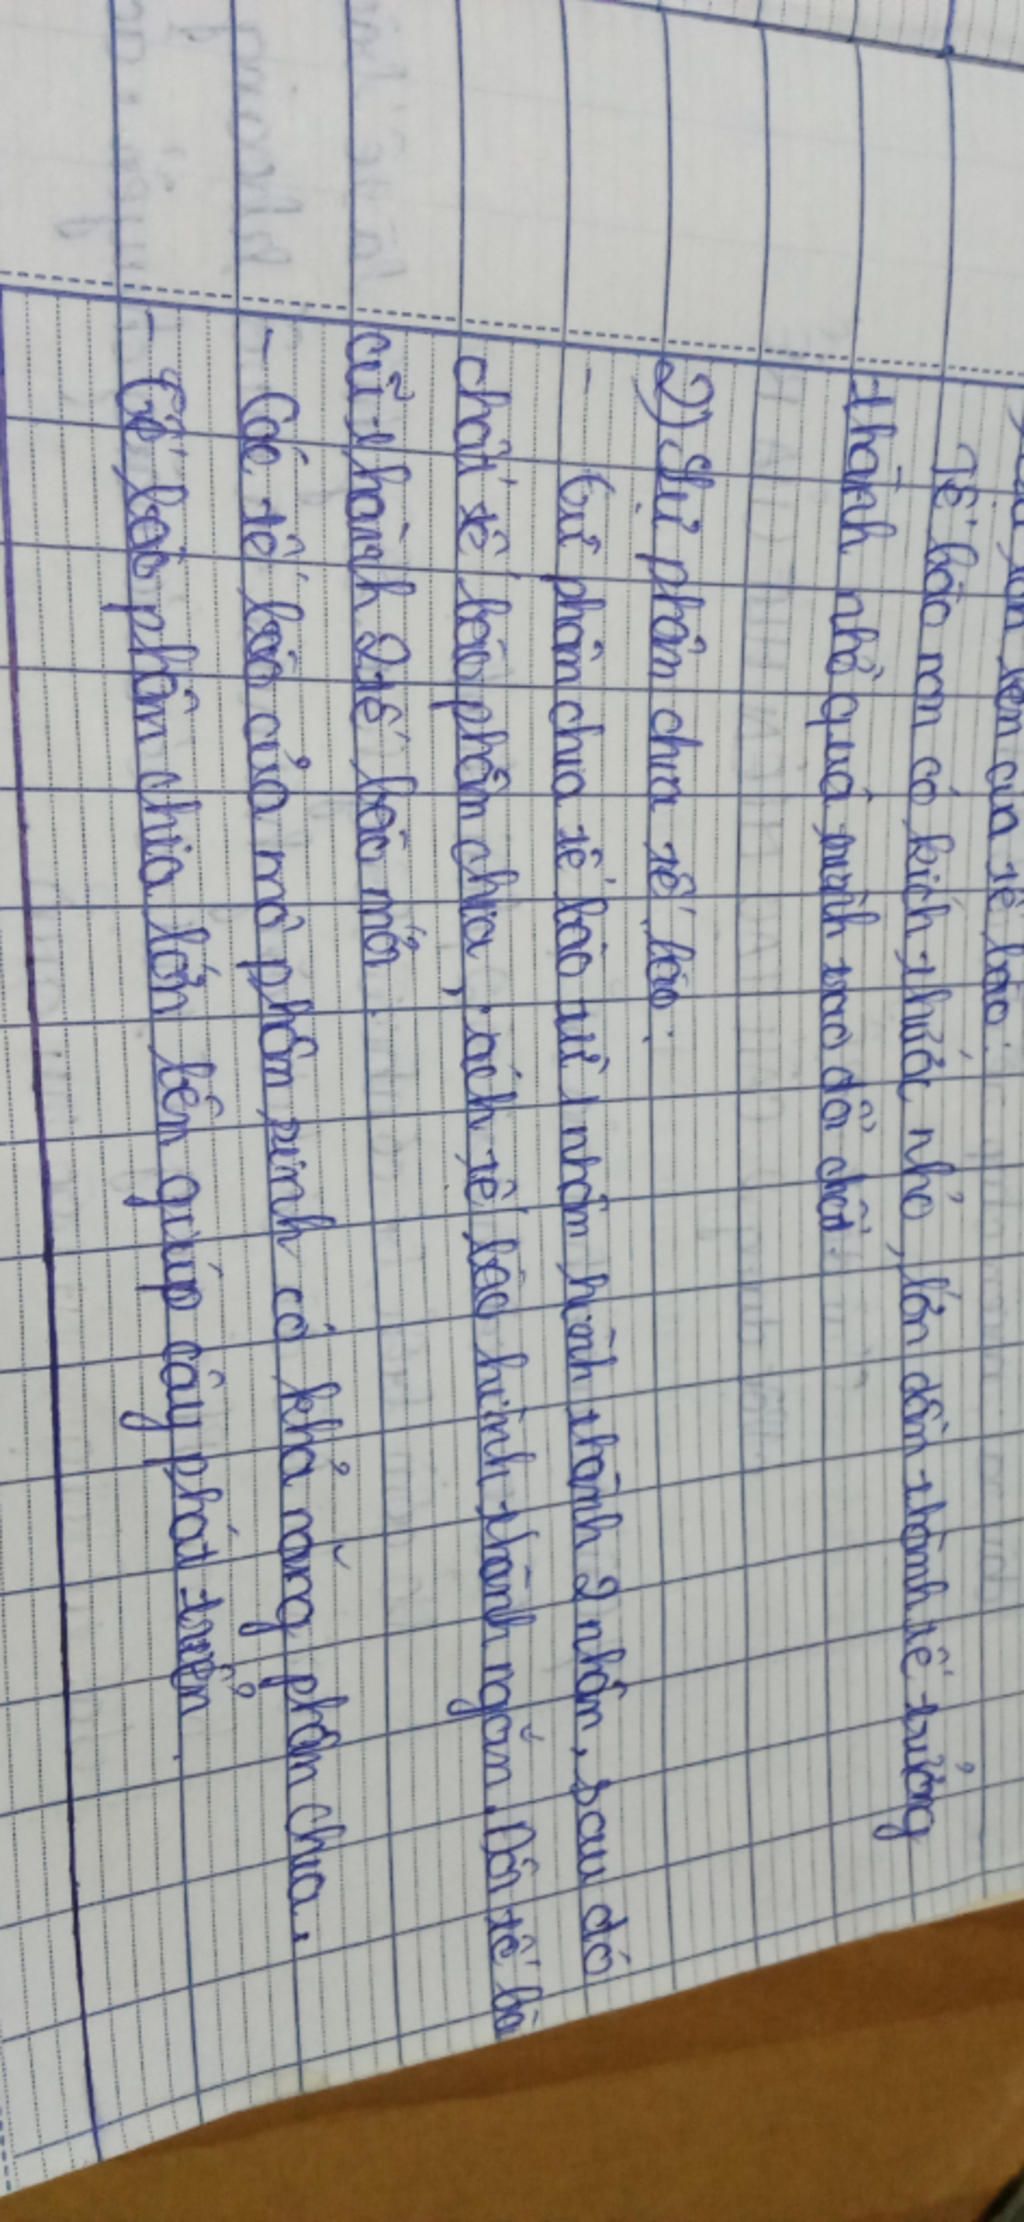 lớn lên của tế bào:
Tế bào non có kích thước nhỏ, lớn dần thành tế trưởng
thành nhờ quá trình trao đổi chất.
2) Sự phân chia tế bào:
- Từ phân chia tế bào từ 1 nhân hình thành 2 nhân, sau đó
chất tế bào phân chia, vách tế bào hình thành ngăn đôi tế bà
cũ thành 2 tế bào mới.
- Các tế bào của mô phân sinh có khả năng phân chia.
- Tế bào phân chia lớn lên giúp cây phát triển.